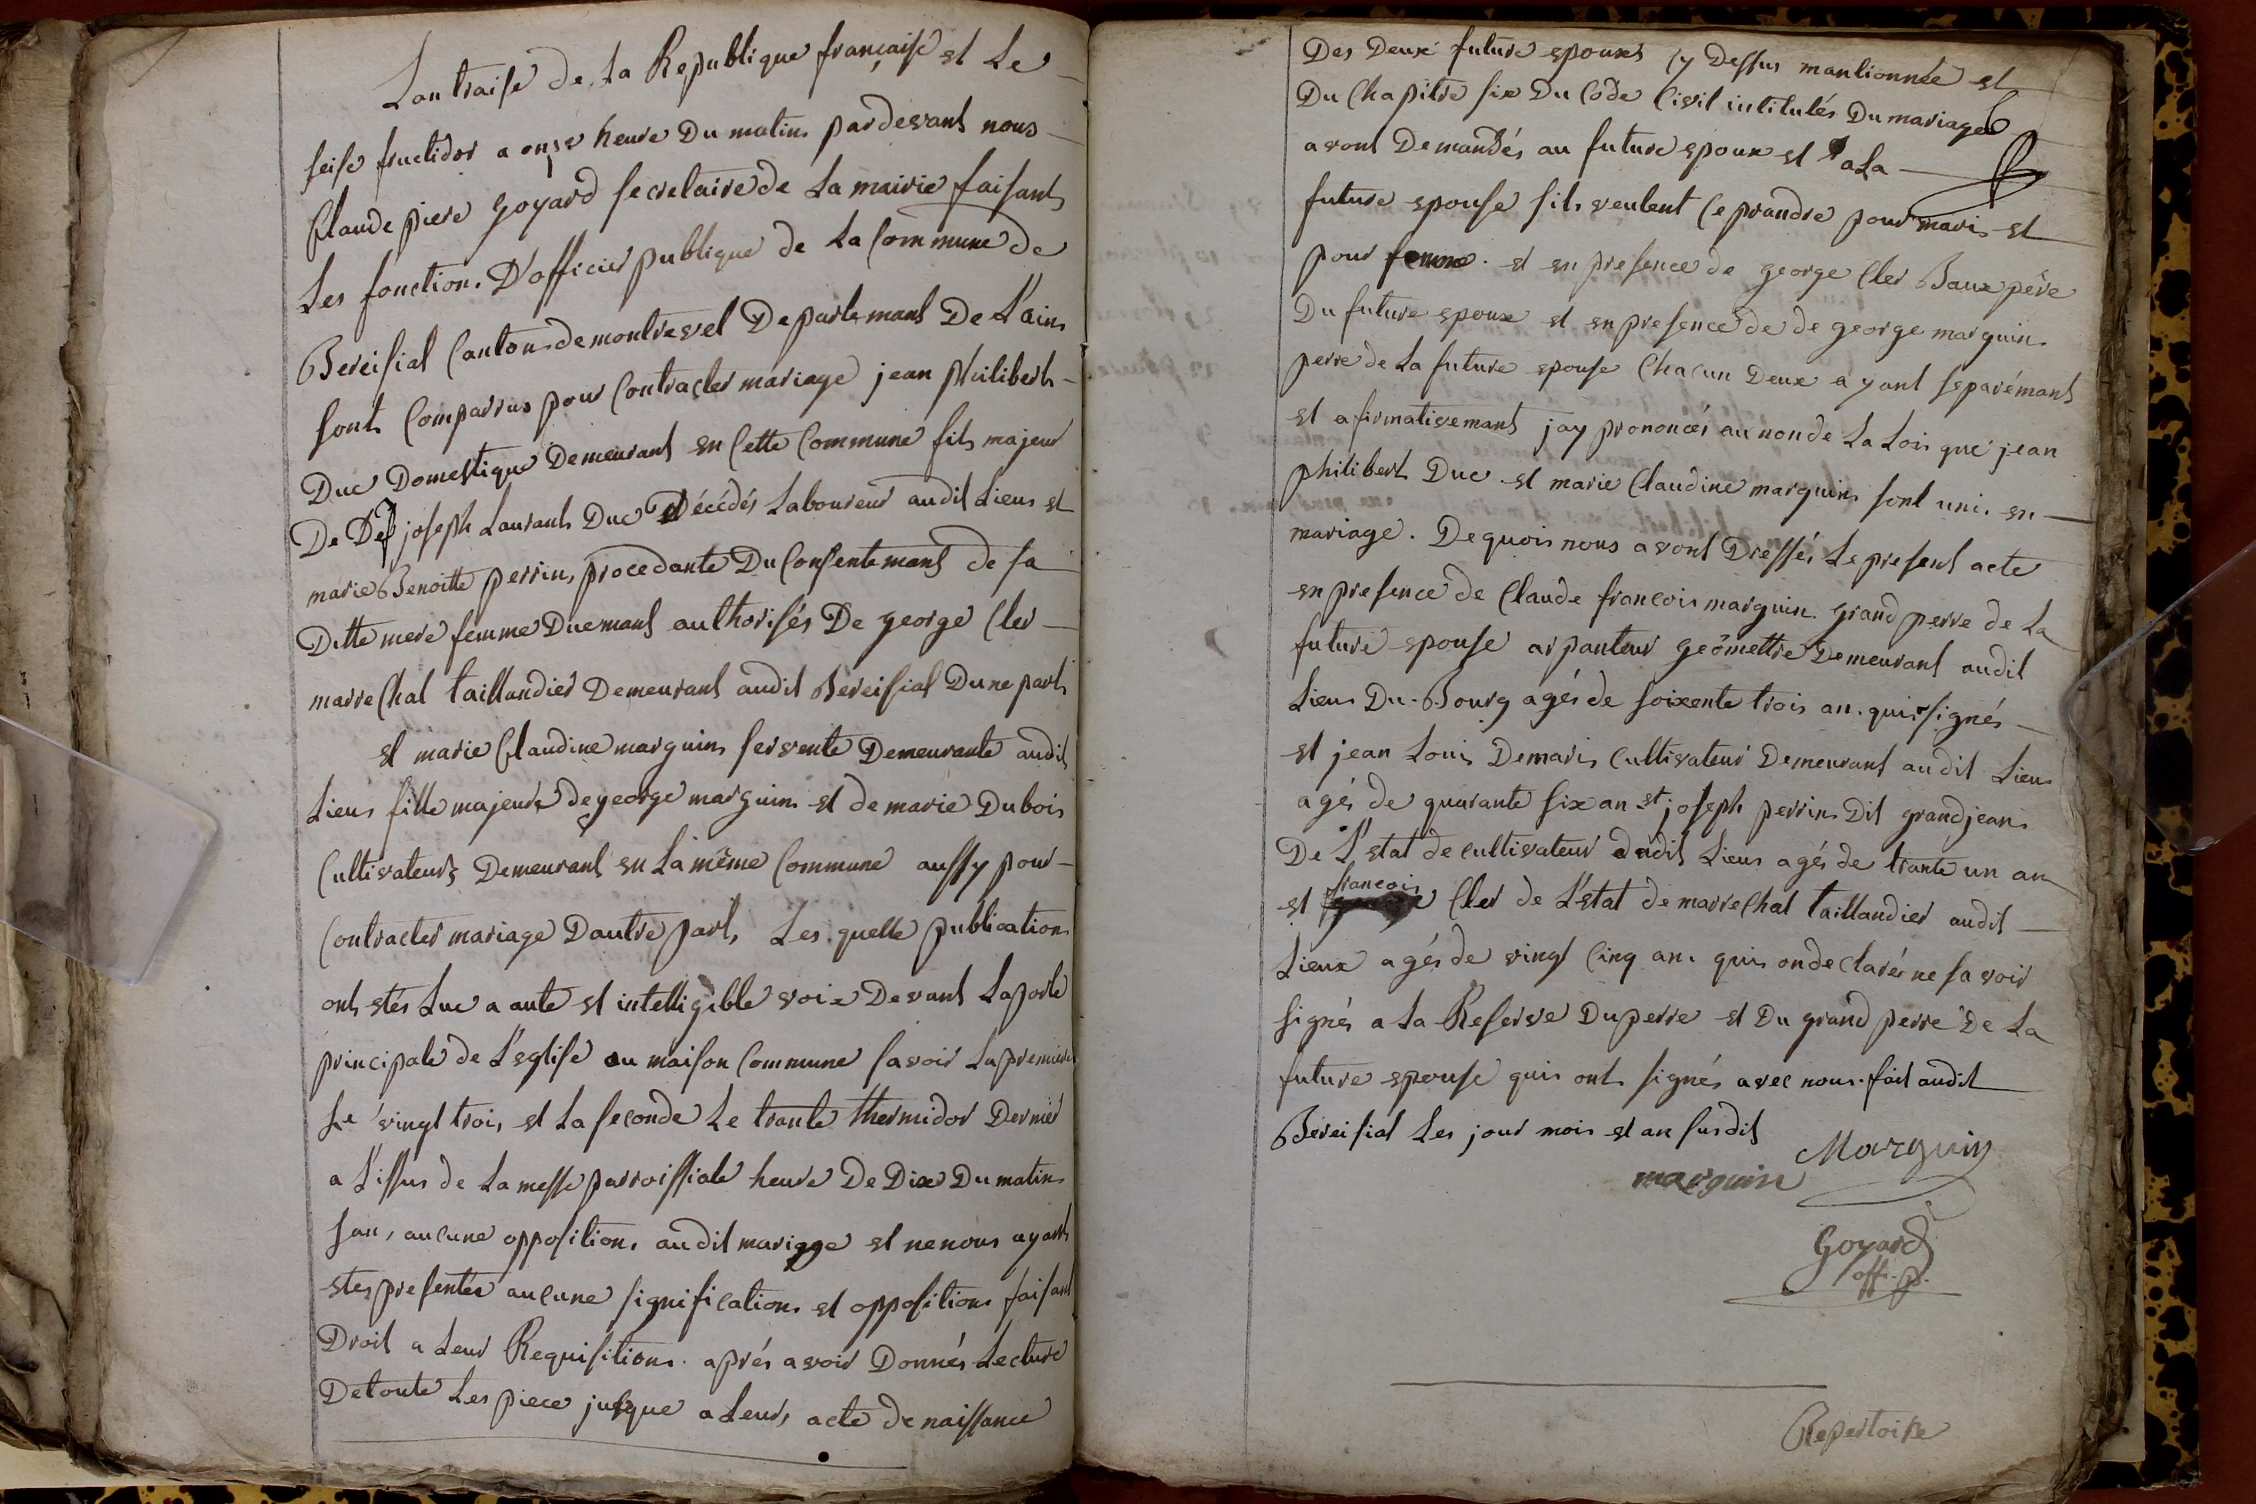 Lan traise de La Republique française et Le
seise fructidor a onse heure Du matin pardevant nous
Claude piere Goyard secretaire de La mairie faisant
Les fonction D'officier publique de La Commune de
Bereisiat Canton de montrevel Departemant De L'ain
sont Comparrus pour Contracter mariage jean philibert
Duc Domestique Demeurant en Cette Commune fils majeur
De joseph Laurant Duc Décédés Laboureur audit Lieus et
marie Benoitte perrin, procedante Du Consentemant de sa
Ditte mere femme Duemant authorisés De george Cler
marrechal taillandier Demeurant audit Bereisiat Dune part
et marie Claudine marguin servente Demeurante audit
Lieus fille majeure de george marguin et de marie Dubois
Cultivateurs Demeurant en La même Commune aussy pour
Contracter mariage Dautre part, Les quelle publication
ont etés Lue a aute et intelligible voix Devant La porte
principale de L'eglise ou maison Commune savoir La premiere
Le vingt trois et La seconde Le trante thermidor Dernier
a L'issus de La messe parroissiale heure De Dix Du matin
san, aucune opposition, audit mariage et ne nous ayant
etes presentée aucune signification et opposition faisant
Droit a Leur Requisition. aprés avoir Donnés Lecture
De toute Les piece jusque a Leurs acte de naissance
Des Deux future epouxes cy Dessus mantionnée et
Du Chapitre six Du Code Civil intitulés Du mariage
avont Demandés au future epoux et a La
future epouse sils veulent Ce prandre pour maris et
pour femme. et en presence de george Cler Baux pére
Du future epoux et en presence de de george marguin
perre de La future epouse Chacun Deux ayant separémant
et afirmativemant jay prononcés au non de La Lois que jean
philibert Duc et marie Claudine marguin sont uni en
mariage. De quois nous avont Dressés Le present acte
en presence de Claude francois marguin grand perre de La
future epouse arpanteur geömettre Demeurant audit
Lieus Du Bourg agés de soixente trois an. quis signés
et jean Louis Demaris Cultivateur Demeurant audit Lieus
agés de quarante six an et joseph perrin Dit grandjean
De L'etat de cultivateur dudit Lieus agés de trante un an
et francois Cler de L'etat de marrechal taillandier audit
Lieux agés de vingt Cinq an. quis on declarés ne savoir
signés a La Reserve Du perre et Du grand perre De La
future epouse quis ont signés avec nous. fait audit
Bereisiat Les jour mois et an susdit
Marguin
marguin
Goyard
off. p.
Repertoire